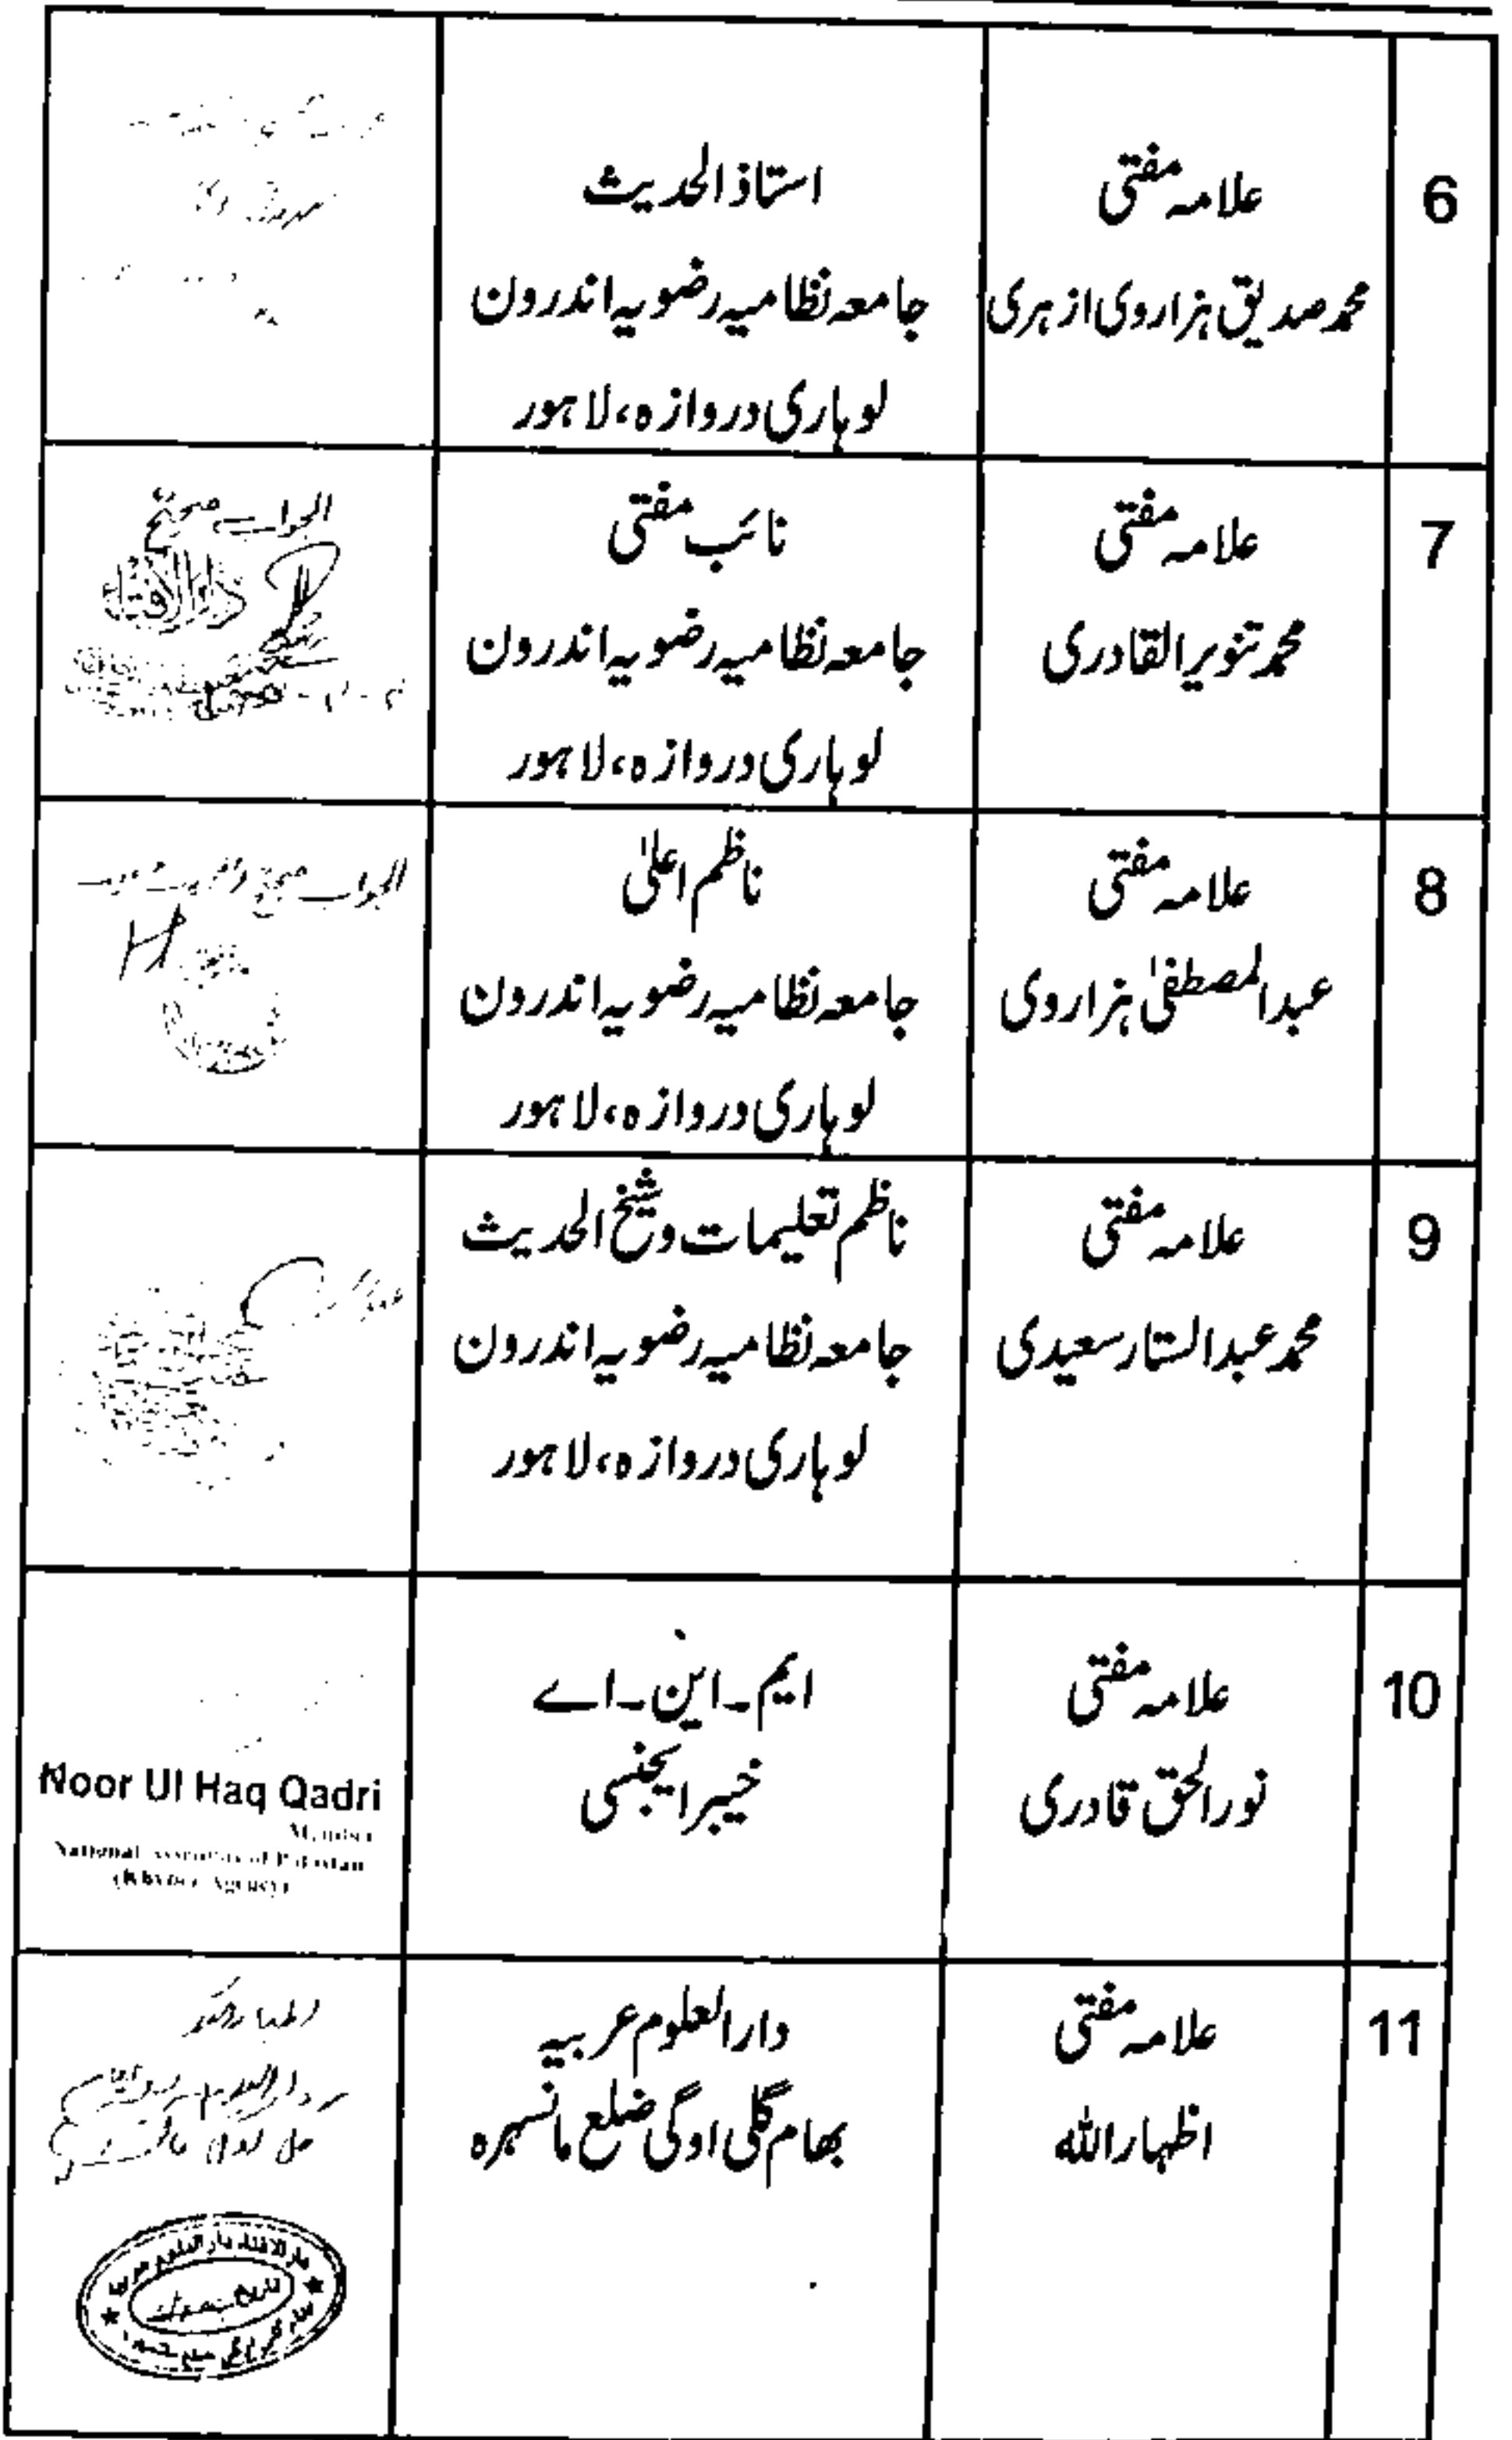 6
علامہ مفتی
محمد صدیق ہزاروی ازہری
استاذ الحدیث
جامعہ نظامیہ رضویہ اندرون
لوہاری دروازہ، لاہور
7
علامہ مفتی
محمد تنویر القادری
نائب مفتی
جامعہ نظامیہ رضویہ اندرون
لوہاری دروازہ، لاہور
الجواب صحیح
دارالافتاء
8
علامہ مفتی
عبدالمصطفیٰ ہزاروی
ناظم اعلیٰ
جامعہ نظامیہ رضویہ اندرون
لوہاری دروازہ، لاہور
الجواب صحیح
9
علامہ مفتی
محمد عبدالستار سعیدی
ناظم تعلیمات و شیخ الحدیث
جامعہ نظامیہ رضویہ اندرون
لوہاری دروازہ، لاہور
10
علامہ مفتی
نورالحق قادری
ایم۔این۔اے
خیبر ایجنسی
Noor Ul Haq Qadri
Member
National Assembly of Pakistan
(Khyber Agency)
11
علامہ مفتی
اظہار اللہ
دارالعلوم عربیہ
بھام گلی اوگی ضلع مانسہرہ